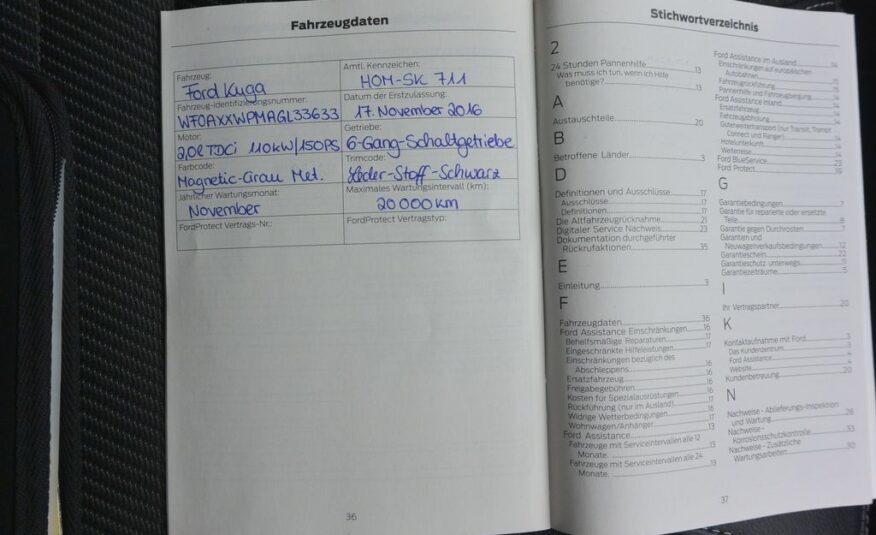 Fahrzeugdaten
Fahrzeug:
Ford Kuga
Amtl. Kennzeichen:
HOM-SK 711
Fahrzeug-Identifizierungsnummer:
WF0AXXWPMAGL33633
Datum der Erstzulassung:
17. November 2016
Motor:
2,0l TDCi 110kW/150PS
Getriebe:
6-Gang-Schaltgetriebe
Farbcode:
Magnetic-Grau Met.
Trimcode:
Leder-Stoff-Schwarz
Jährlicher Wartungsmonat:
November
Maximales Wartungsintervall (km):
20 000 km
FordProtect Vertrags-Nr.:
FordProtect Vertragstyp:
36
Stichwortverzeichnis
2
24 Stunden Pannenhilfe 13
Was muss ich tun, wenn ich Hilfe
benötige? 13
A
Austauschteile 20
B
Betroffene Länder 3
D
Definitionen und Ausschlüsse 17
Ausschlüsse 17
Definitionen 17
Die Altfahrzeugrücknahme 21
Digitaler Service Nachweis 23
Dokumentation durchgeführter
Rückrufaktionen 35
E
Einleitung 3
F
Fahrzeugdaten 36
Ford Assistance Einschränkungen 16
Behelfsmäßige Reparaturen 17
Eingeschränkte Hilfeleistungen 17
Einschränkungen bezüglich des
Abschleppens 16
Ersatzfahrzeug 16
Freigabegebühren 16
Kosten für Spezialausrüstungen 16
Rückführung (nur im Ausland) 17
Widrige Wetterbedingungen 16
Wohnwagen/Anhänger 17
Ford Assistance 13
Fahrzeuge mit Serviceintervallen alle 12
Monate 13
Fahrzeuge mit Serviceintervallen alle 24
Monate 13
Ford Assistance im Ausland 14
Einschränkungen auf europäischen
Autobahnen 15
Fahrzeugrückführung 15
Pannenhilfe und Fahrzeugbergung 14
Ford Assistance Inland 14
Ersatzfahrzeug 14
Fahrzeugabholung 14
Güterweitertransport (nur Transit, Transit
Connect und Ranger) 14
Hotelunterkunft 14
Weiterreise 14
Ford BlueService 23
Ford Protect 19
G
Garantiebedingungen 7
Garantie für reparierte oder ersetzte
Teile 8
Garantie gegen Durchrosten 7
Garantien und
Neuwagenverkaufsbedingungen 12
Garantieschein 22
Garantieschutz unterwegs 11
Garantiezeiträume 5
I
Ihr Vertragspartner 20
K
Kontaktaufnahme mit Ford 3
Das Kundenzentrum 3
Ford Assistance 4
Website 4
Kundenbetreuung 20
N
Nachweise - Ablieferungs-Inspektion
und Wartung 26
Nachweise -
Korrosionsschutzkontrolle 33
Nachweise - Zusätzliche
Wartungsarbeiten 30
37